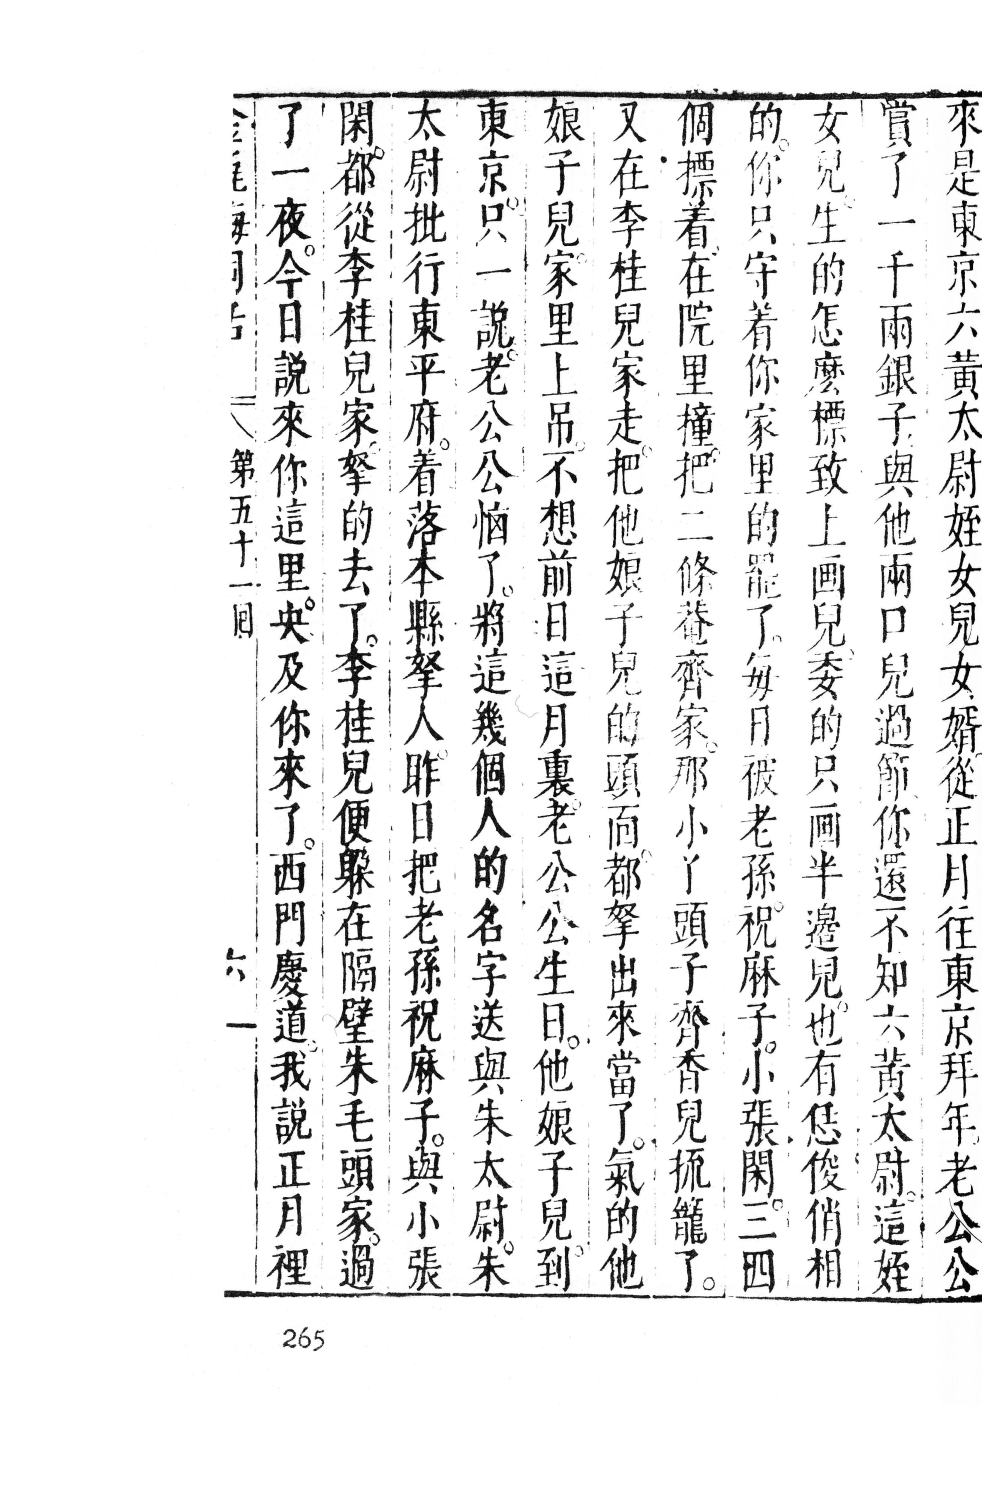 來是東京六黃太尉姪女兒女婿從正月往東京拜年老公公
賞了一千兩銀子與他兩口兒過節你還不知六黃太尉這姪
女兒生的怎麽標致上画兒委的只画半邉兒也有恁俊俏相
的你只守着你家里的罷了每日被老孫祝麻子小張閑三四
個摽着在院里撞把二條巷齊家那小丫頭子齊香兒梳籠了
又在李桂兒家走把他娘子兒的頭面都拏出來當了氣的他
娘子兒家里上吊不想前日這月裏老公公生日他娘子兒到
東京只一說老公公惱了將這幾個人的名字送與朱太尉朱
太尉批行東平府着落本縣拏人昨日把老孫祝麻子與小張
閑都從李桂兒家拏的去了李桂兒便躱在隔壁朱毛頭家過
了一夜今日說來你這里央及你來了西門慶道我說正月裡
金瓶梅詞話 第五十一囘 六
265